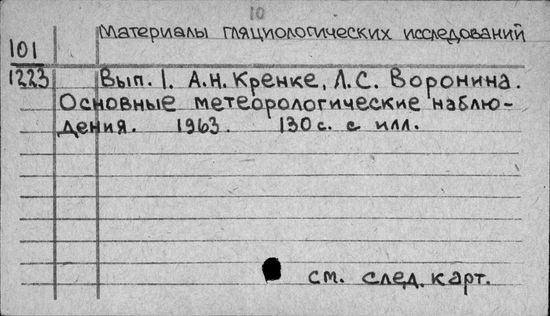 10
Материалы гляциологических исследований
101
1223 Вып. 1. А.Н. Кренке, Л.С. Воронина.
Основные метеорологические наблю-
дения. 1963. 130 с. с илл.
см. след. карт.